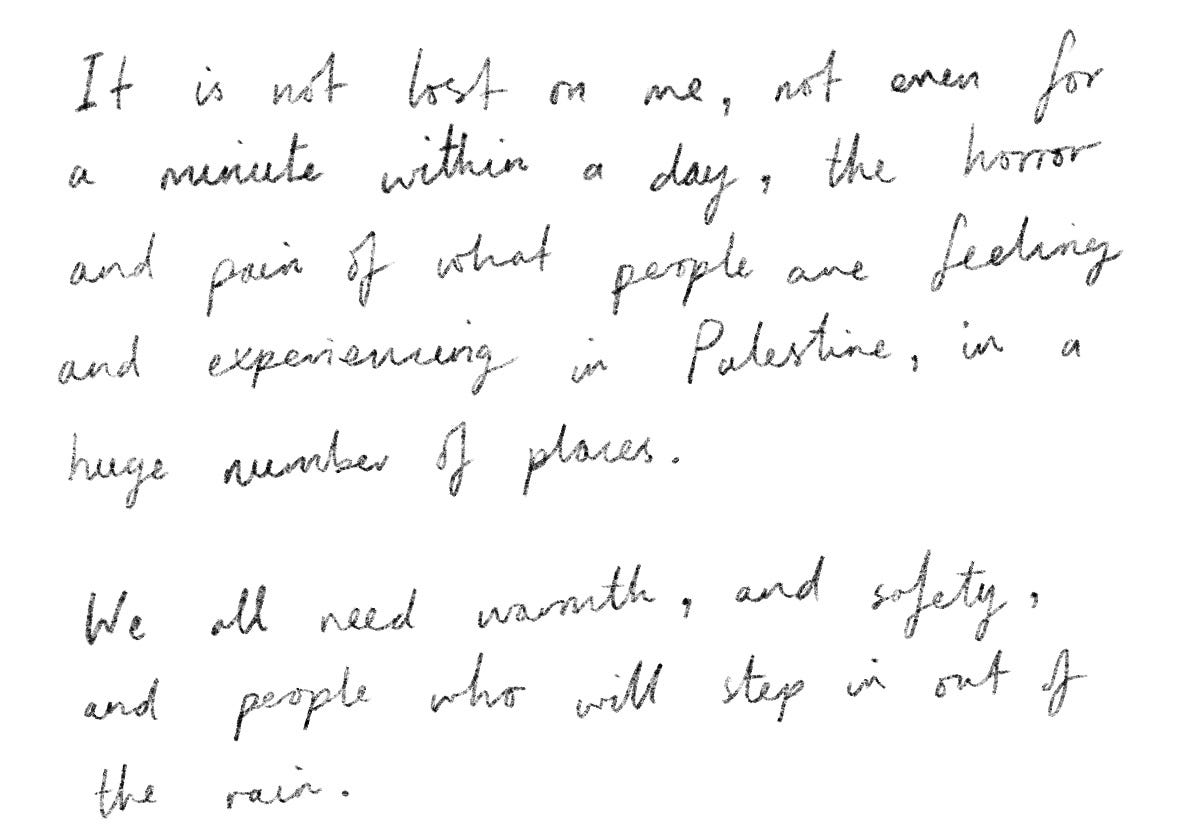 It is not lost on me, not even for
a minute within a day, the horror
and pain of what people are feeling
and experiencing in Palestine, in a
huge number of places.
We all need warmth, and safety,
and people who will step in out of
the rain.